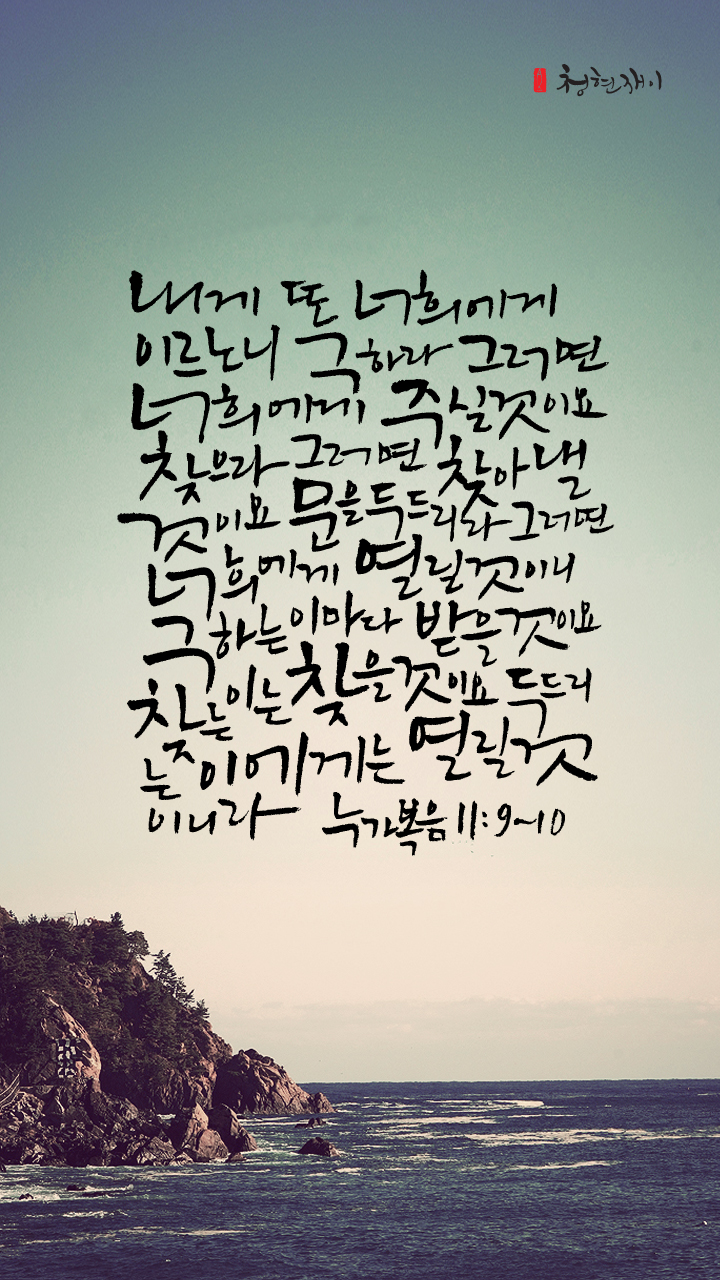 청현재이
내게 또 너희에게
이르노니 구하라 그러면
너희에게 주실것이요
찾으라 그러면 찾아낼
것이요 문을두드리라 그러면
너희에게 열릴것이니
구하는이마다 받을것이요
찾는이는 찾을것이요 두드리
는 이에게는 열릴것
이니라 누가복음 11:9~10